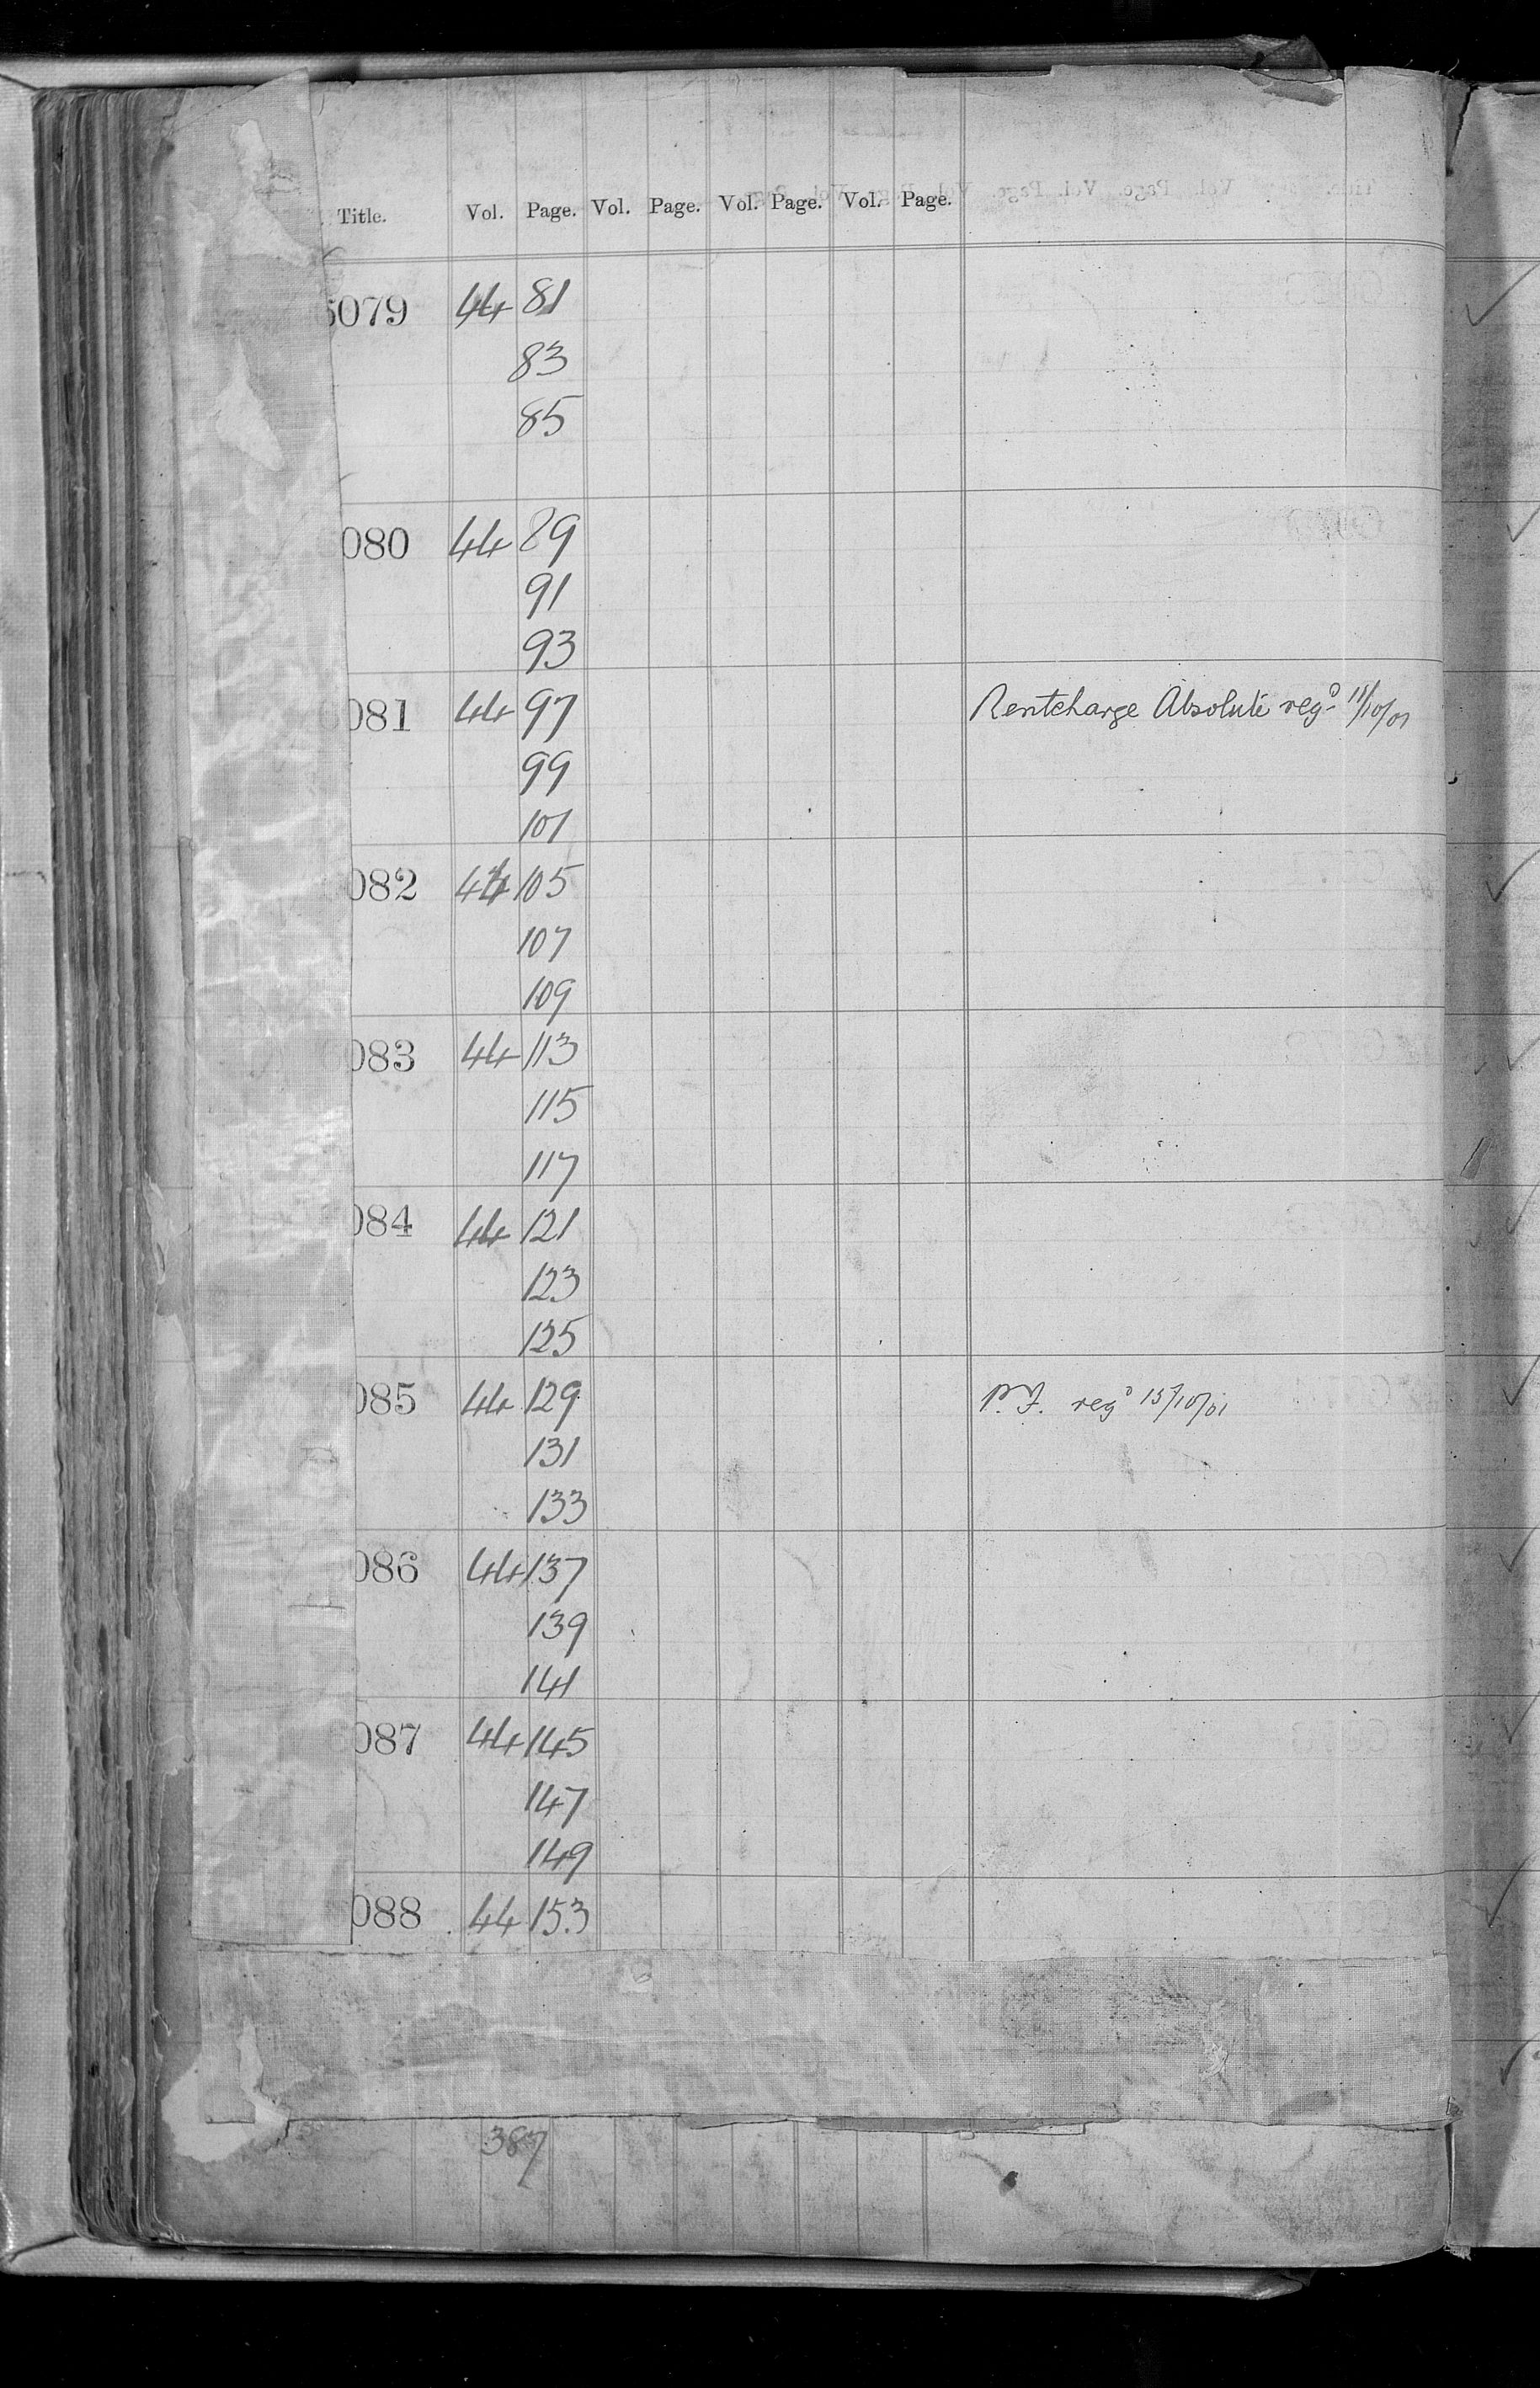 Title. Vol. Page. Vol. Page. Vol. Page. Vol. Page.
6079 44 81
83
85
080 44 89
91
93
081 44 97 Rentcharge Absolute regd 11/10/01
99
101
082 44 105
107
109
083 44 113
115
117
084 44 121
123
125
085 44 129 P.F. regd 15/10/01
131
133
086 44 137
139
141
087 44 145
147
149
088 44 153
387